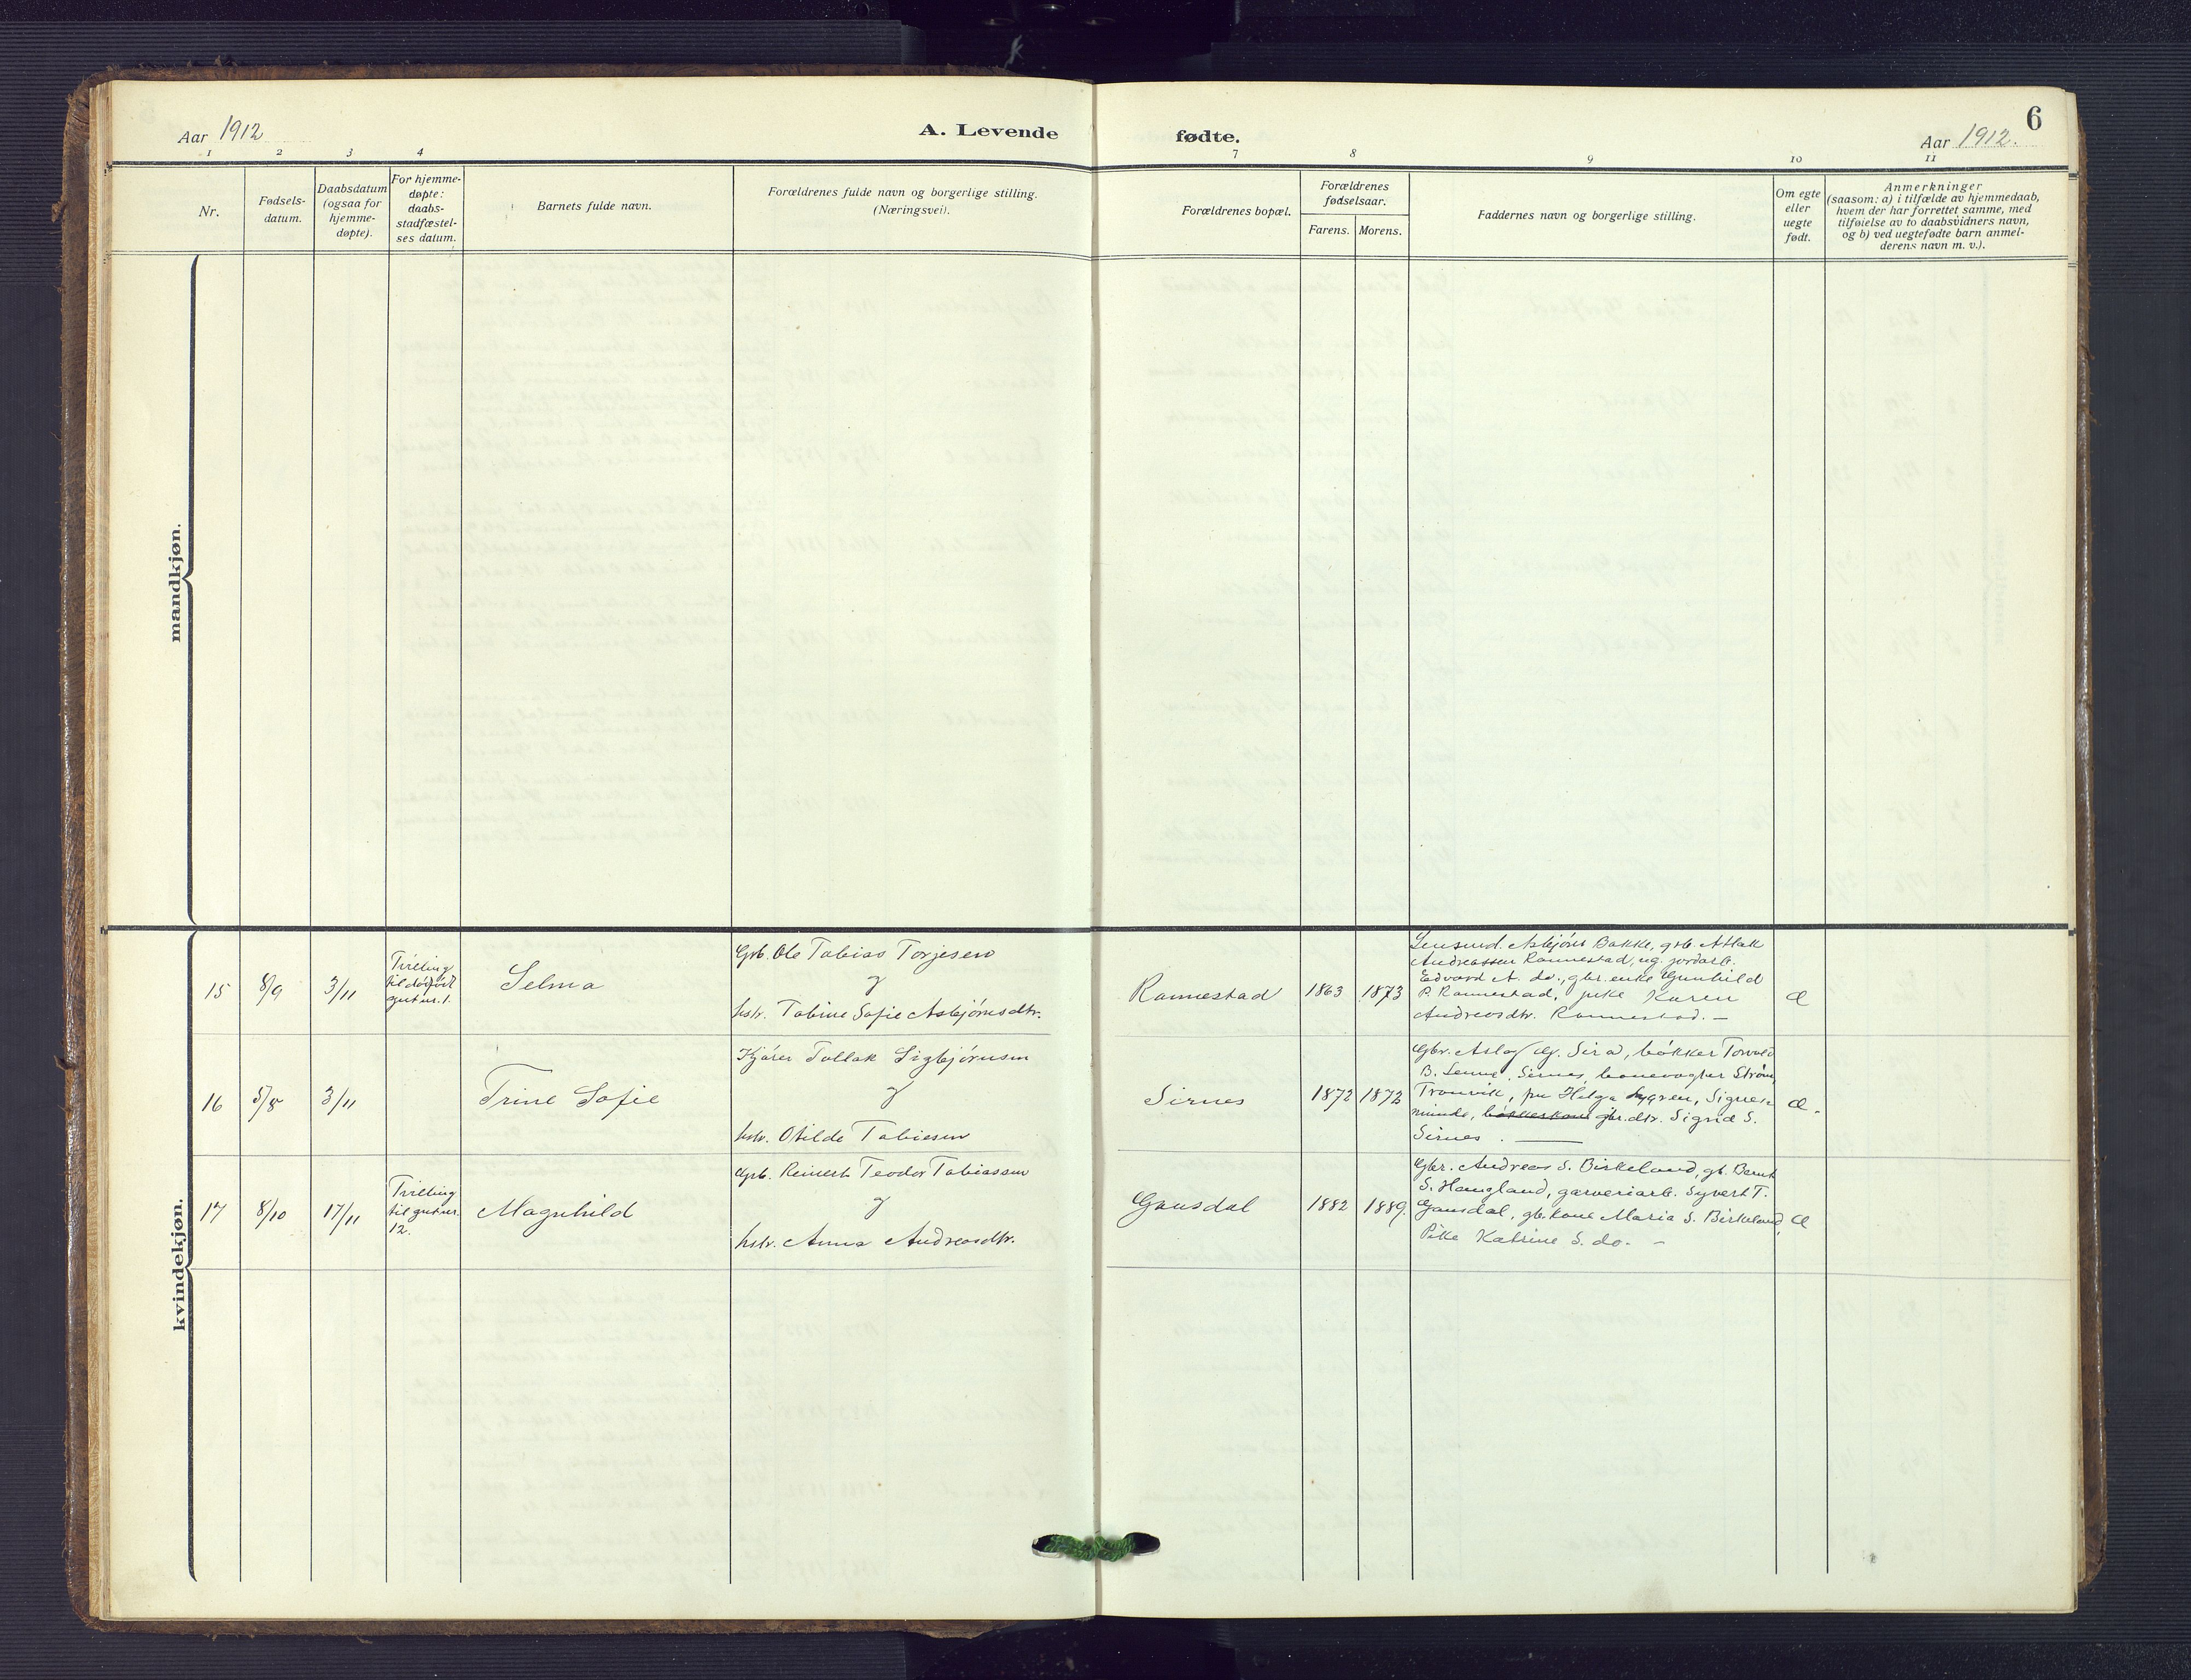 Aar 1912
A. Levende
fødte.
6
Aar 1912.
1 2 3 4
7 8 9 10 11
Nr.
Fødsels-
datum.
Daabsdatum
(ogsaa for
hjemme-
døpte).
For hjemme-
døpte:
daabs-
stadfæstel-
ses datum.
Barnets fulde navn.
Forældrenes fulde navn og borgerlige stilling.
(Næringsvei).
Forældrenes bopæl.
Forældrenes
fødselsaar.
Farens. Morens.
Faddernes navn og borgerlige stilling.
Om egte
eller
uegte
født.
Anmerkninger
(saasom: a) i tilfælde av hjemmedaab,
hvem der har forrettet samme, med
tilføielse av to daabsvidners navn,
og b) ved uegtefødte barn anmel-
derens navn m. v.).
mandkjøn.
kvindekjøn.
15
8/9
3/11
Tvilling
til dødfödt
gut nr. 1.
Selma
Grb. Ole Tobias Torjesen
og
hstr. Tobine Sofie Asbjörnsdtr.
Rannestad
1863
1873
Lensmd. Asbjörn Bakke, grb. Atlak
Andreassen Rannestad, ug. jordarb.
Edvard A. do., gbr. enke Gunhild
P. Rannestad, pike Karen
Andreasdtr. Rannestad. -
Æ
16
5/8
3/11
Trine Sofie
Kjörer Tollak Sigbjörnsen
og
hstr. Otilde Tobiesen
Sirnes
1872
1872
Gbr. Aslag G. Sira, bökker Torvald
B. Sirnes, banevogter Ström,
Tronvik, fru Helga Nygren, Signes-
minde, bökkerkone gbr.dtr. Sigrid S.
Sirnes. -
Æ.
17
8/10
17/11
Tvilling
til gut nr.
12.
Magnhild
Grb. Reinert Teodor Tobiassen
og
hstr. Anna Andreasdtr.
Gausdal
1882
1889.
Gbr. Andreas S. Birkeland, gb. Bernt
S. Haugland, garveriarb. Syvert T.
Gausdal, gbr.kone Maria S. Birkeland,
Pike Katrine S. do. -
Æ